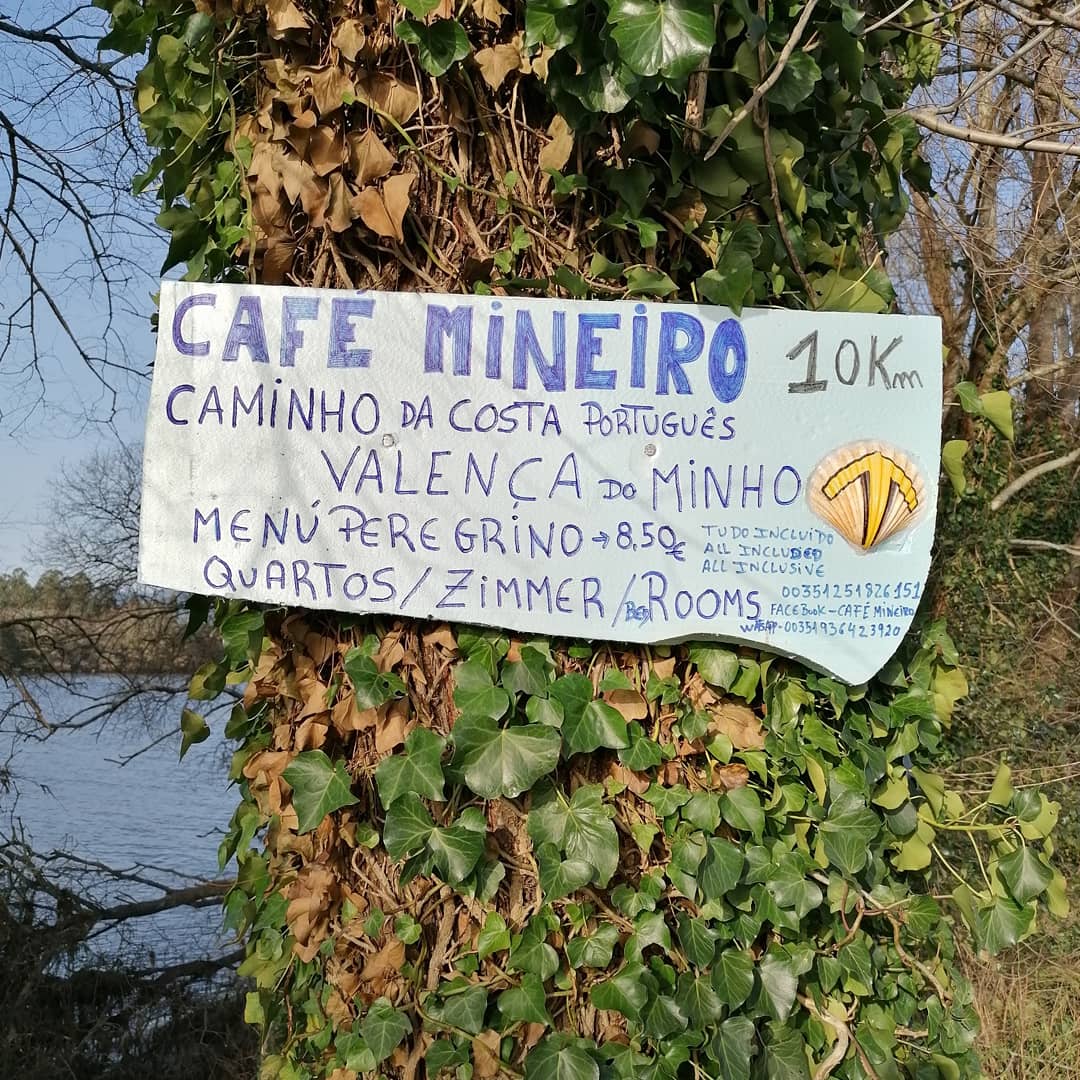 CAFÉ MINEIRO 10Km
CAMINHO DA COSTA PORTUGUÊS
VALENÇA DO MINHO
MENÚ PEREGRINO → 8,50€
TUDO INCLUIDO
ALL INCLUDED
ALL INCLUSIVE
QUARTOS/ZIMMER/ROOMS
00351251826151
FACEBOOK-CAFÉ MINEIRO
-00351936423920